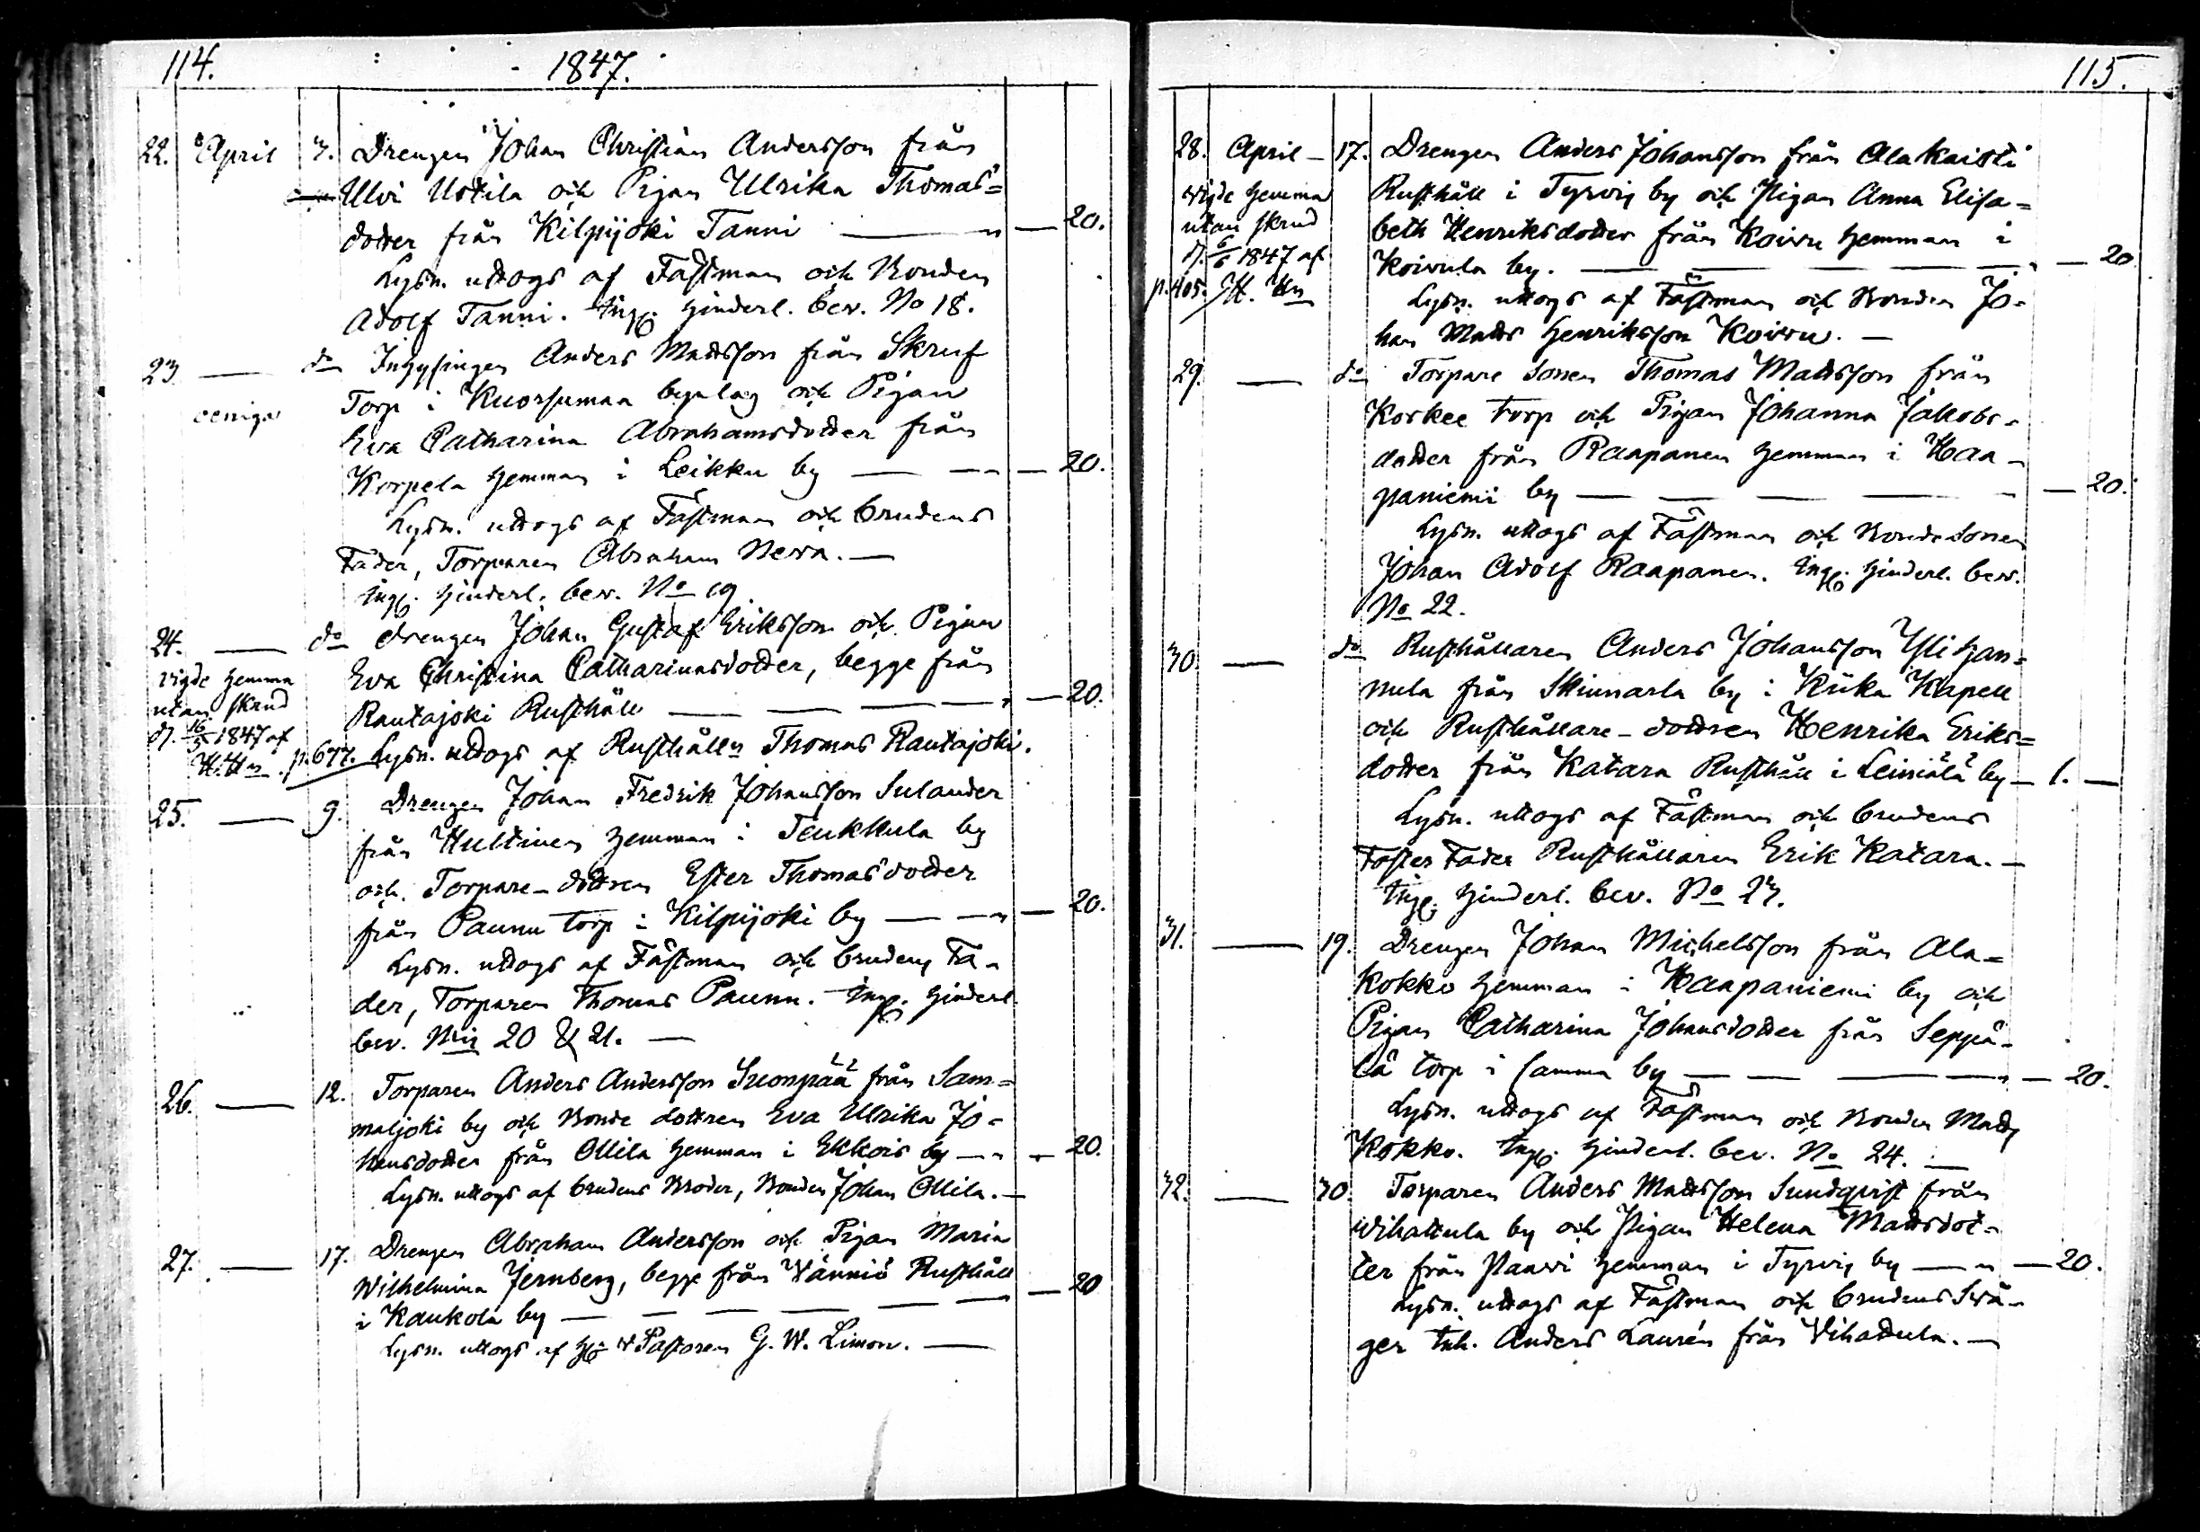 114.
1847.
22. April 3. Drengen Johan Christian Andersson från
Ulvi Ustila och Pigan Ulrika Thomas=
dotter från Kilpijoki Tanni — 20.
Lysn. uttogs af Fästman och Bonden
Adolf Tanni. Ing. hinderl. bev. No 18.
23 — do Inhysingen Anders Mattsson från Skruf
Torp i Kuorsumaa byalag och Pigan
oeniga
Eva Catharina Abrahamsdotter från
Korpela hemman i Leikku by — 20.
Lysn. uttogs af Fästman och brudens
Fader, Torparen Abraham Neva. —
Ing. hinderl. bev. No 19.
24. — do Drengen Johan Gustaf Eriksson och Pigan
vigde hemma
Eva Christina Catharinasdotter, begge från
utan skrud
Rautajoki Rusthåll — 20.
d. 16/5 1847 af
H. Hn. p. 677. Lysn. uttogs af Rusthålln Thomas Rautajoki.
25. — 9. Drengen Johan Fredrik Johansson Sulander
från Hultinen hemman i Teukkula by
och Torpare-dottren Ester Thomasdotter
från Paunu torp i Kilpijoki by — 20.
Lysn. uttogs af Fästman och brudens Fa-
der, Torparen Thomas Paunu. Ing. hinderl.
bev. Nris 20 & 21. —
26. — 12. Torparen Anders Andersson Suonpää från Sam=
maljoki by och Bonde dottren Eva Ulrika Jo-
hansdotter från Ollila hemman i Ekkois by — 20.
Lysn. uttogs af brudens Broder, Bonden Johan Ollila. —
27. — 17. Drengen Abraham Andersson och Pigan Maria
Wilhelmina Jernberg, begge från Wänniö Rusthåll
i Kaukola by — 20
Lysn. uttogs af V Pastoren G. W. Limon. —
115.
28. April — 17. Drengen Anders Johansson från Alakaisti
vigde hemma
Rusthåll i Tyrvis by och Pigan Anna Elisa=
utan skrud
beth Henriksdotter från Koivu hemman i
d. 6/6 1847 af
Koivula by. — 20
p. 405. H. Hn
Lysn. uttogs af Fästman och Bonden Jo-
han Matts Henriksson Koivu. —
29. — do Torpare Sonen Thomas Mattsson från
Koskee torp och Pigan Johanna Jakobs-
dotter från Raapanen hemman i Haa-
paniemi by — 20.
Lysn. uttogs af Fästman och Bondesonen
Johan Adolf Raapanen. Ing. hinderl. bev.
No 22.
30 — do Rusthållaren Anders Johansson Yli Han=
nula från Skinnarla by i Kiika Kapell
och Rusthållare-dottren Henrika Eriks=
dotter från Katara Rusthåll i Leiniälä by — 1. —
Lysn. uttogs af Fästman och brudens
Foster Fader Rusthållaren Erik Katara. —
Ing. hinderl. bev. No 23.
31. — 19. Drengen Johan Michelsson från Ala=
Kokko hemman i Haapaniemi by och
Pigan Catharina Johansdotter från Seppä-
lä torp i samma by — 20.
Lysn. uttogs af Fästman och Bonden Matts
Kokko. Ing. hinderl. bev. No 24. —
32. — 30. Torparen Anders Mattsson Sundqvist från
Wihattula by och Pigan Helena Mattsdot-
ter från Paavi hemman i Tyrvis by — 20.
Lysn. uttogs af Fästman och brudens Svå-
ger Inh. Anders Laurén från Vihattula. —